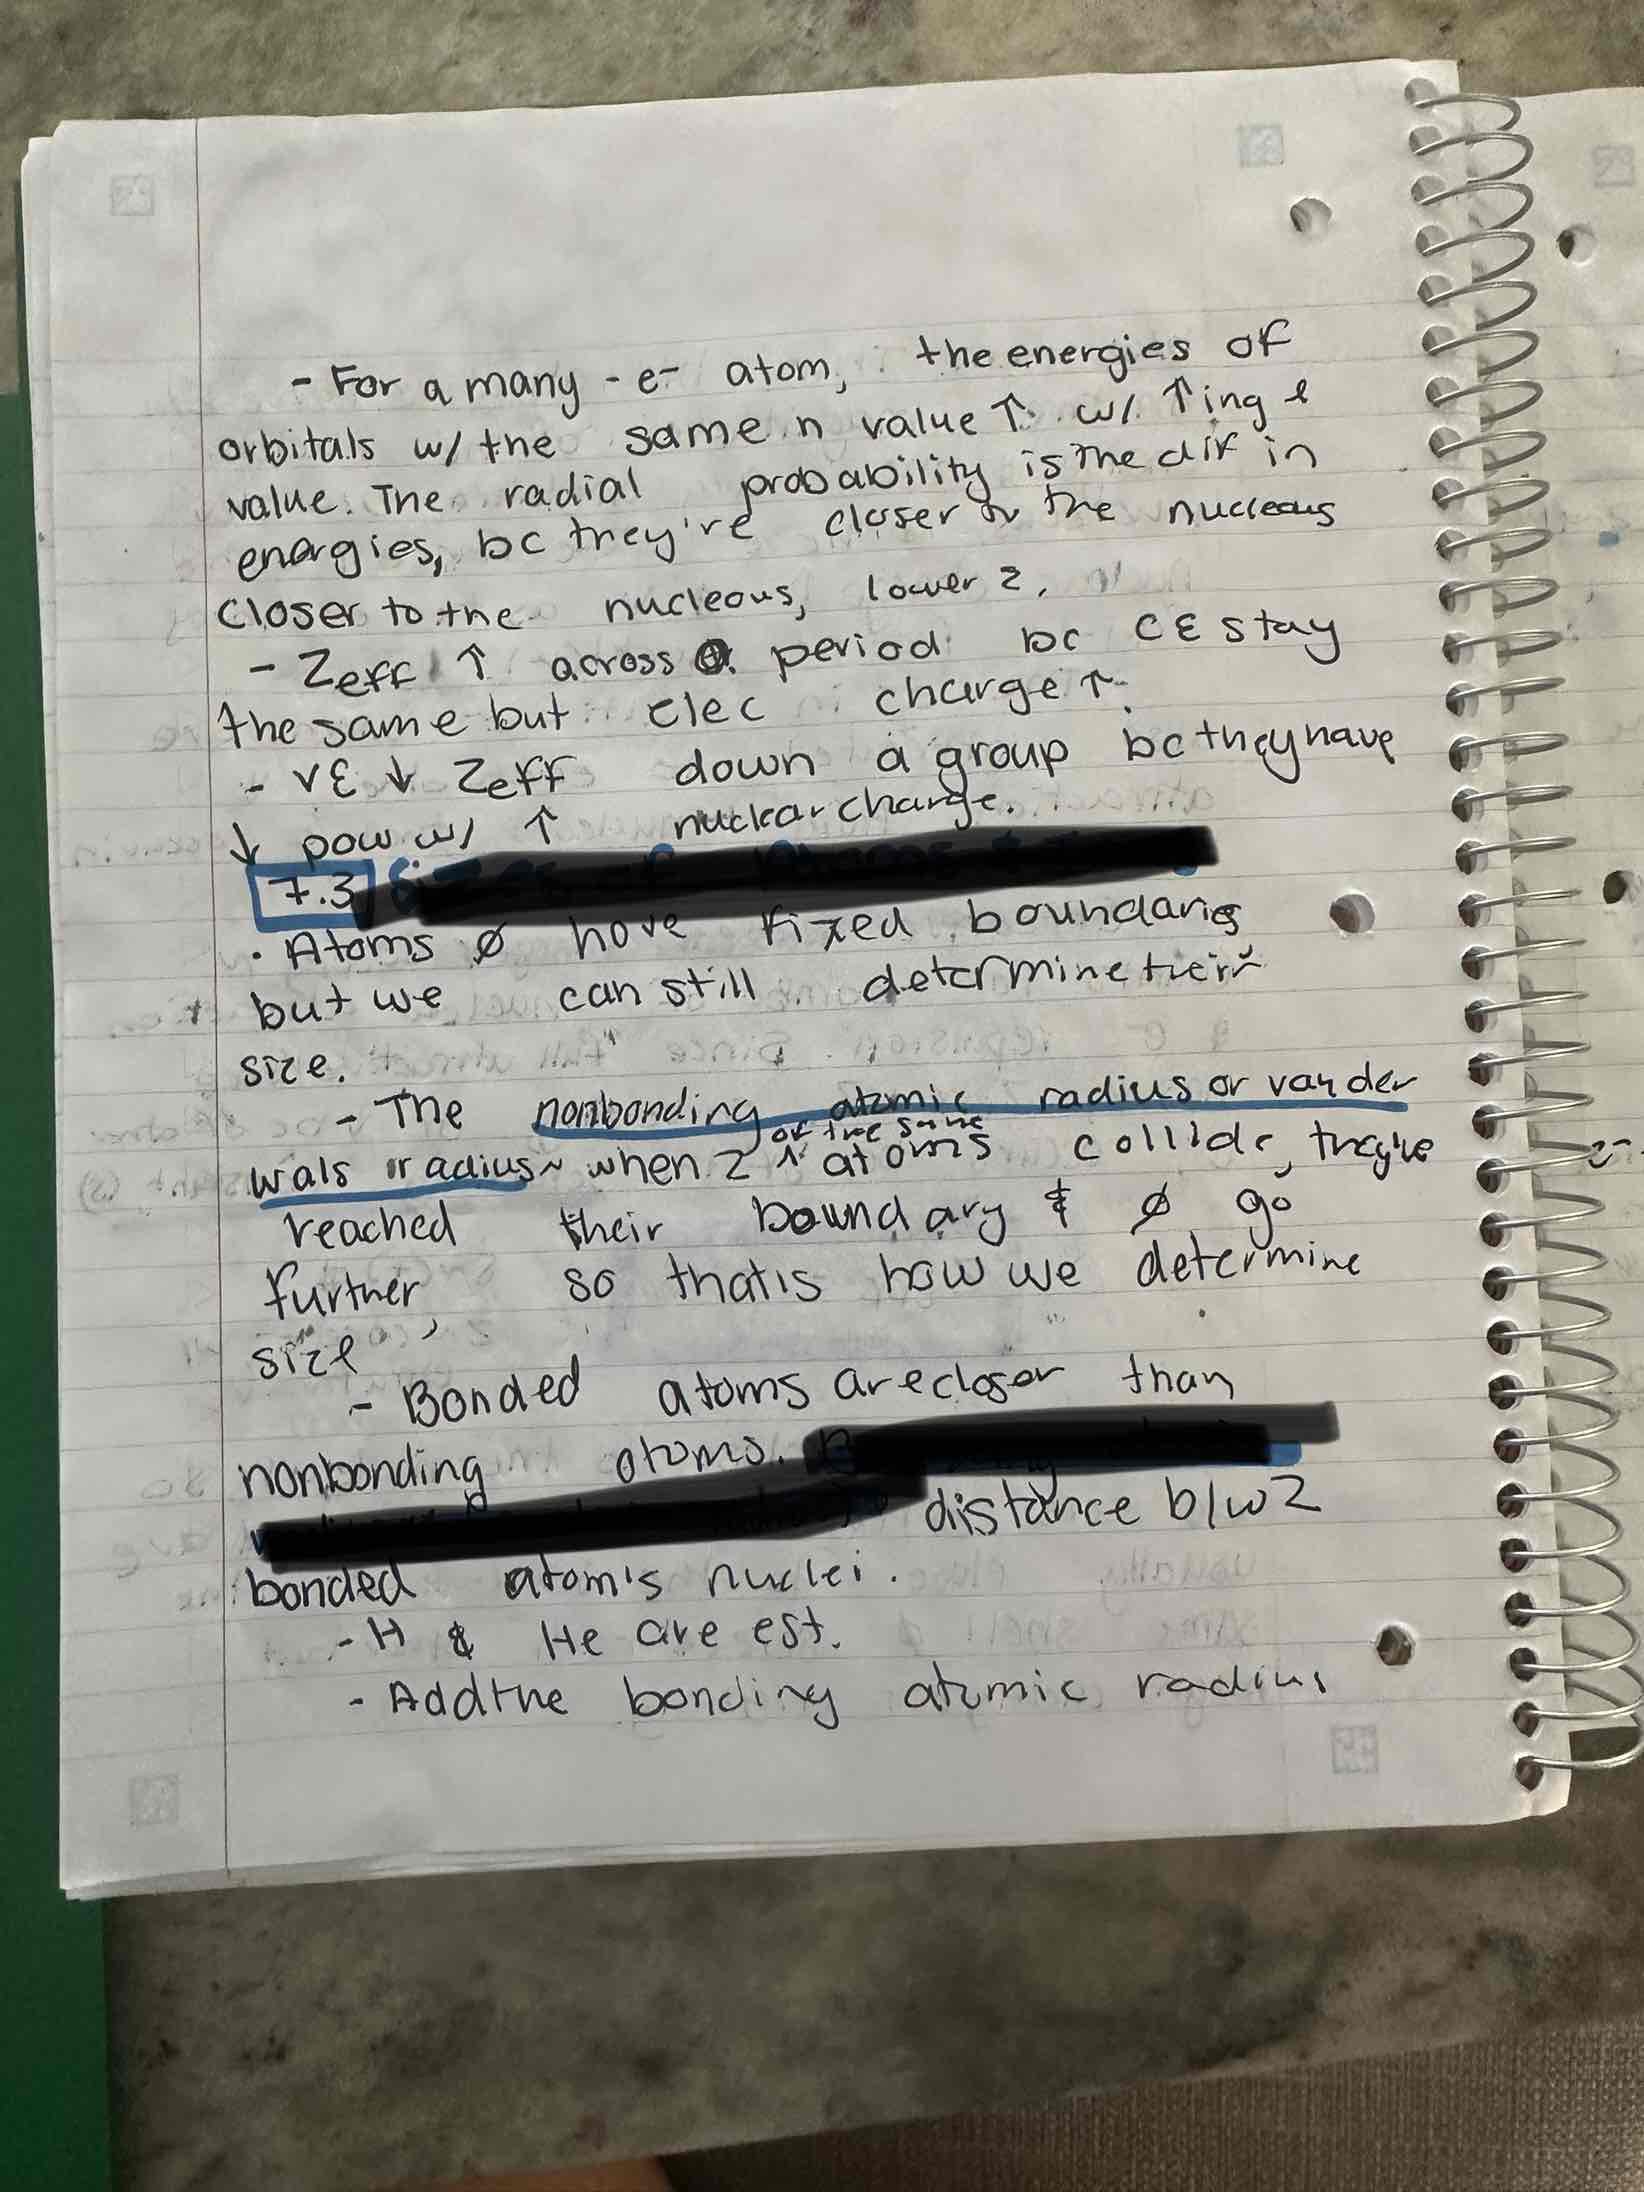 - For a many - e- atom, the energies of
orbitals w/ the same n value ↑ w/ ↑ing l
value. The radial probability is the dif in
energies, bc they're closer to the nucleous
closer to the nucleous, lower
- Zeff ↑ across a period bc CE stay
the same but elec charge ↑.
- VE ↓ Zeff down a group bc they have
↓ pow w/ ↑ nuclear charge.
7.3
· Atoms ∅ have fixed boundaries
but we can still determine their
size.
- The nonbonding atomic radius or van der
of the same
wals radius~ when 2 ^ atoms collide, they've
reached their boundary & ∅ go
further, so that is how we determine
size
- Bonded atoms are closer than
nonbonding atoms.
distance b/w 2
bonded atom's nuclei.
- H & He are est.
- Add the bonding atomic radius